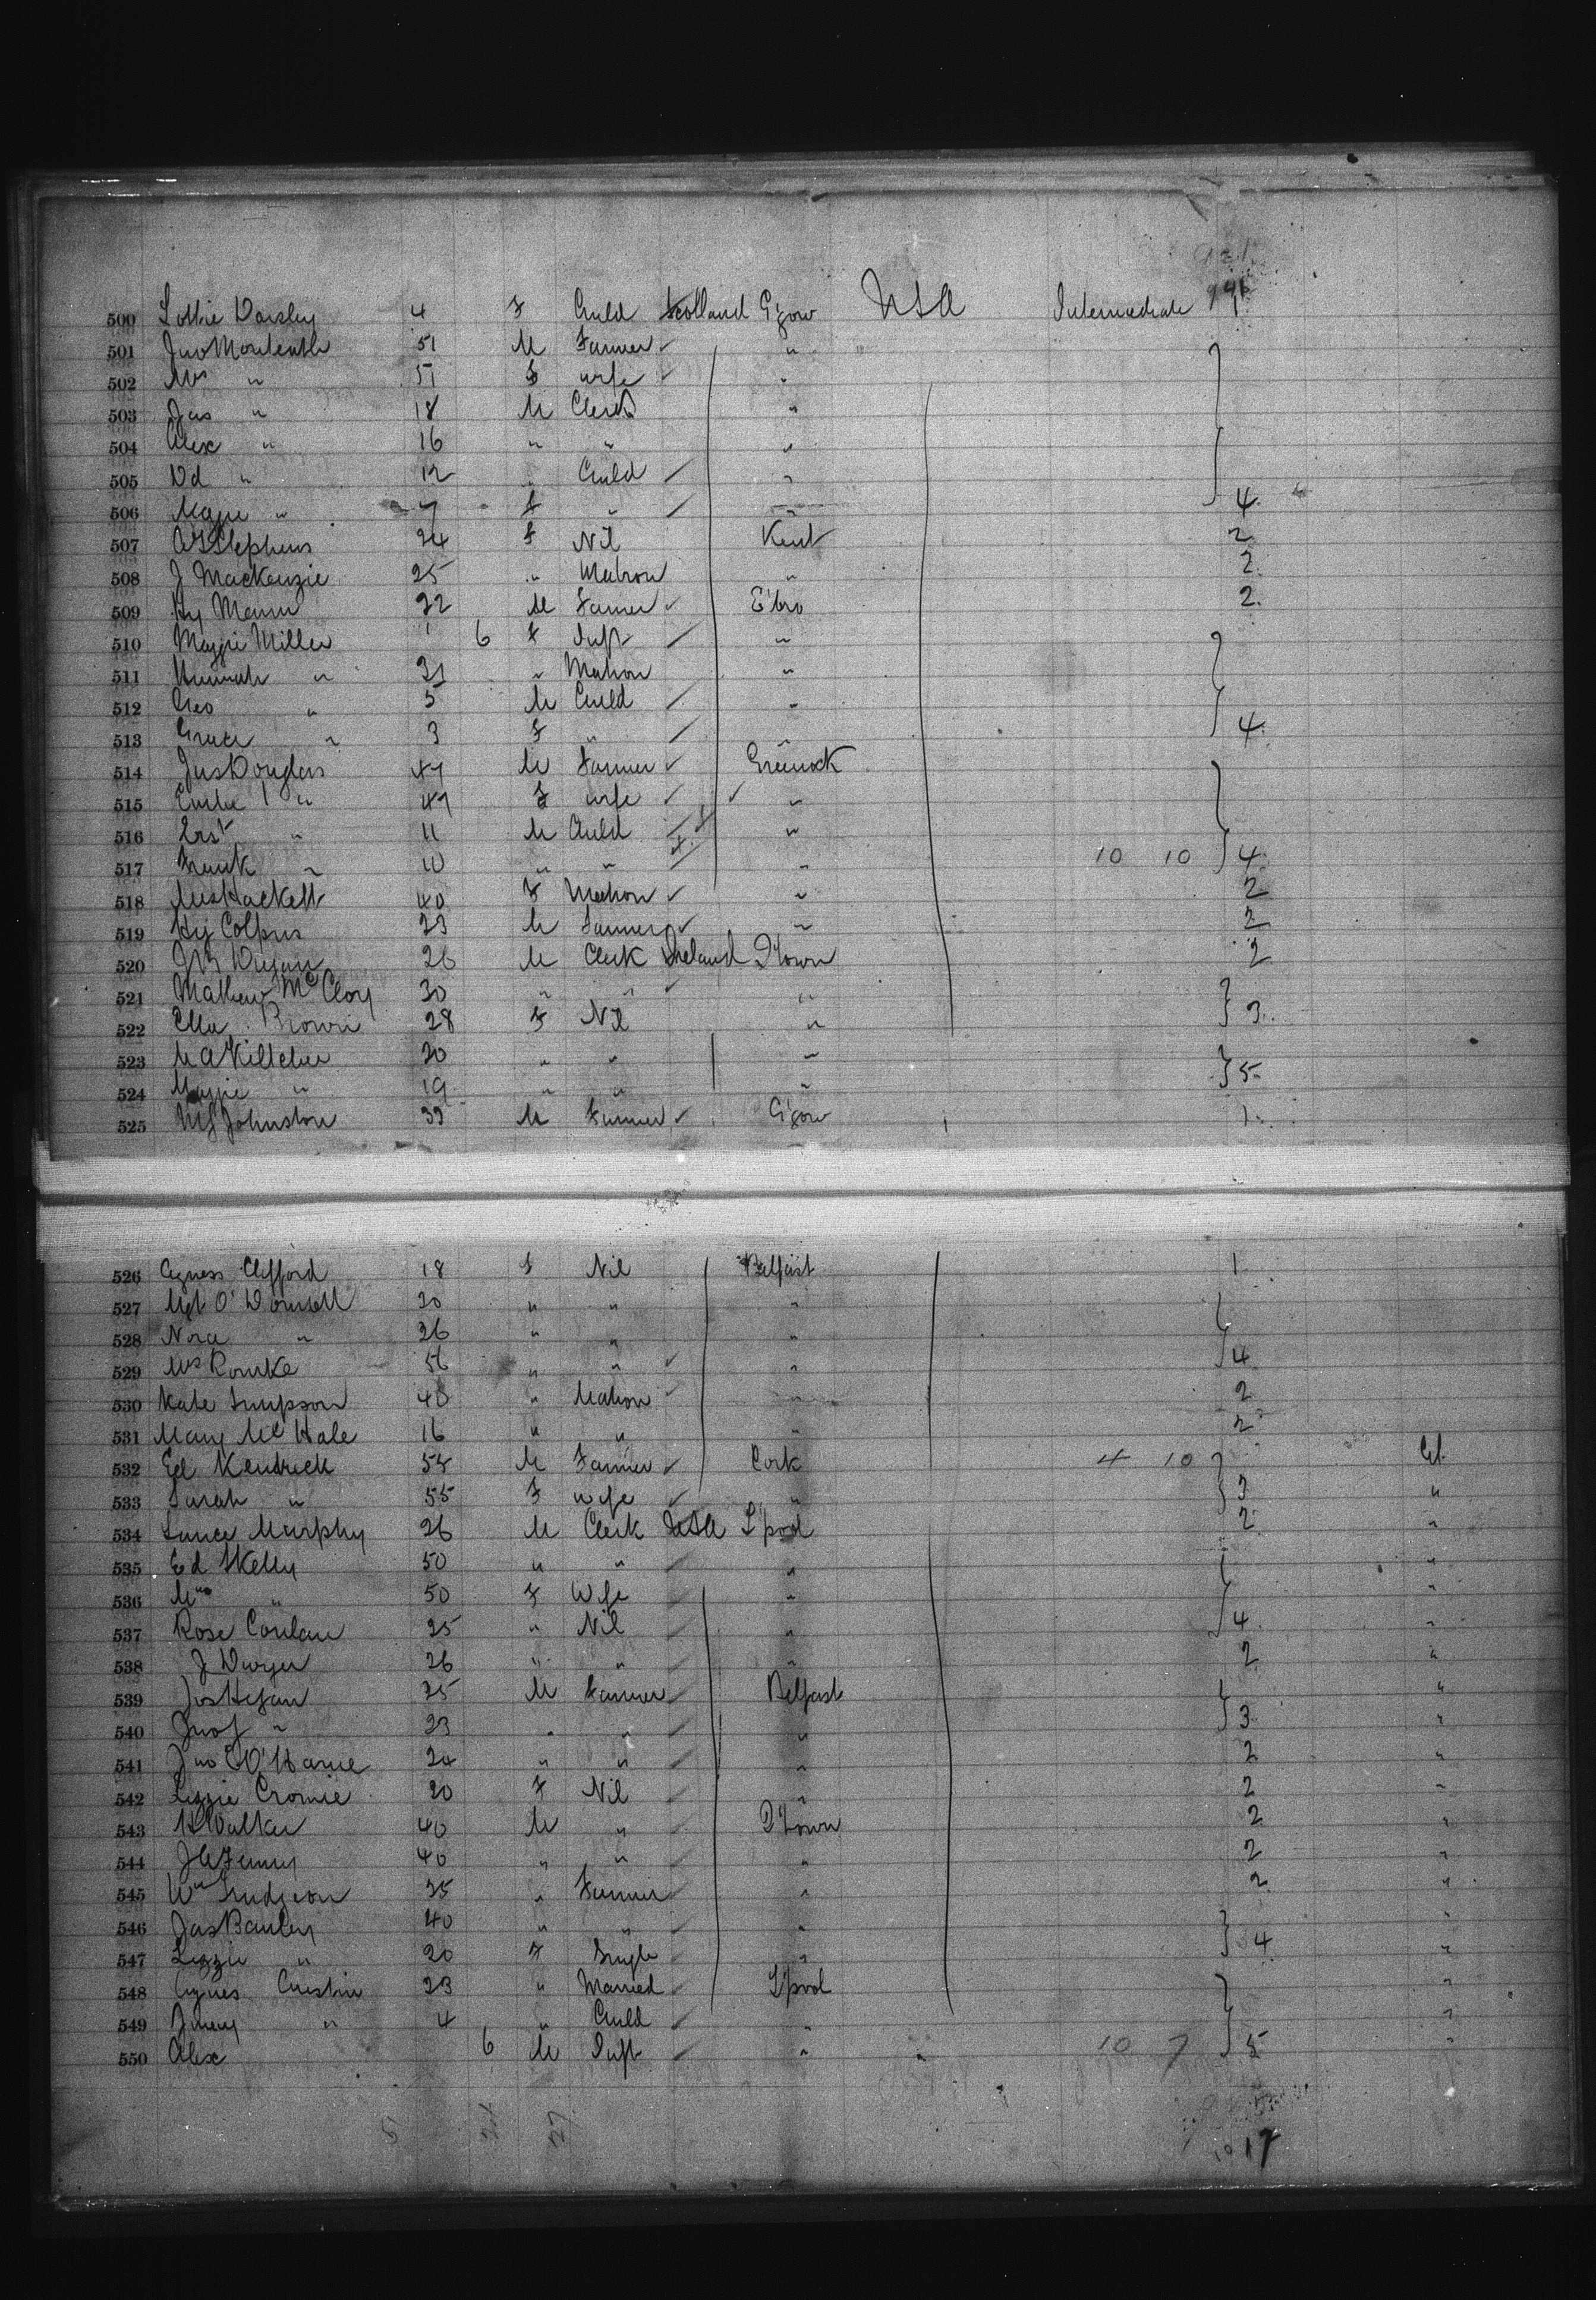 500 Lottie Darsley 4 F Child Scotland G'gow USA Intermediate 1
501 Jno Monteath 51 M Farmer "
502 Mrs " 51 F wife "
503 Jas " 18 M Clerk "
504 Alex " 16 " " "
505 Dd " 12 " Child "
506 Magie " 7 F " " 4
507 Stephens 24 F Nil Kent 2
508 J MacKenzie 25 " Matron " 2.
509 Hy Mann 22 M Farmer E'bro 2.
510 Maggie Miller 6 F Inft "
511 Hannah " 31 " Matron "
512 Geo " 5 M Child "
513 Grace " 3 F " " 4.
514 Jas Douglas 47 M Farmer Greenock
515 " 47 F wife "
516 Erst " 11 M Child "
517 Frank " 10 " " " 10 10 4
518 Mrs Hackett 40 F Matron " 2
519 Hy Colpus 23 M Farmer " 2
520 26 M Clerk Ireland Q'town 2
521 Mathew McCloy 30 " " "
522 Ella Brown 28 F Nil " 3.
523 M A Killeher 20 " " "
524 Maggie " 19 " " " 5.
525 Johnston 33 M Farmer G'gow 1.
526 Agness Clifford 18 F Nil Belfast 1
527 Mgt O'Donnell 20 " " "
528 Nora " 26 " " "
529 Mrs Rourke 56 " " " 4
530 Kate Simpson 40 " Matron " 2
531 Mary McHale 16 " " " 2
532 Ed Kendrick 54 M Farmer Cork 4 10
533 Sarah " 55 F wife " 3 "
534 Lance Murphy 26 M Clerk USA L'pool 2 "
535 Ed Skelly 50 " " " "
536 Mrs " 50 F Wife " "
537 Rose Conlan 25 " Nil " 4 "
538 J Dwyer 26 " " " 2 "
539 Jas Hegan 25 M Farmer Belfast "
540 Jno J " 23 " " " 3 "
541 Jno O'Harne 24 " " " 2 "
542 Lizzie Cromie 20 F Nil " 2 "
543 H Walker 40 M " Q'town 2 "
544 40 " " " 2 "
545 Wm Trudgeon 35 " Farmer " 2 "
546 Jas Banley 40 " " " "
547 Lizzie " 20 F Single " 4 "
548 Agnes 23 " Married L'pool "
549 " 4 " Child " "
550 Alex 6 M Inft " " 10 7 5 "
17